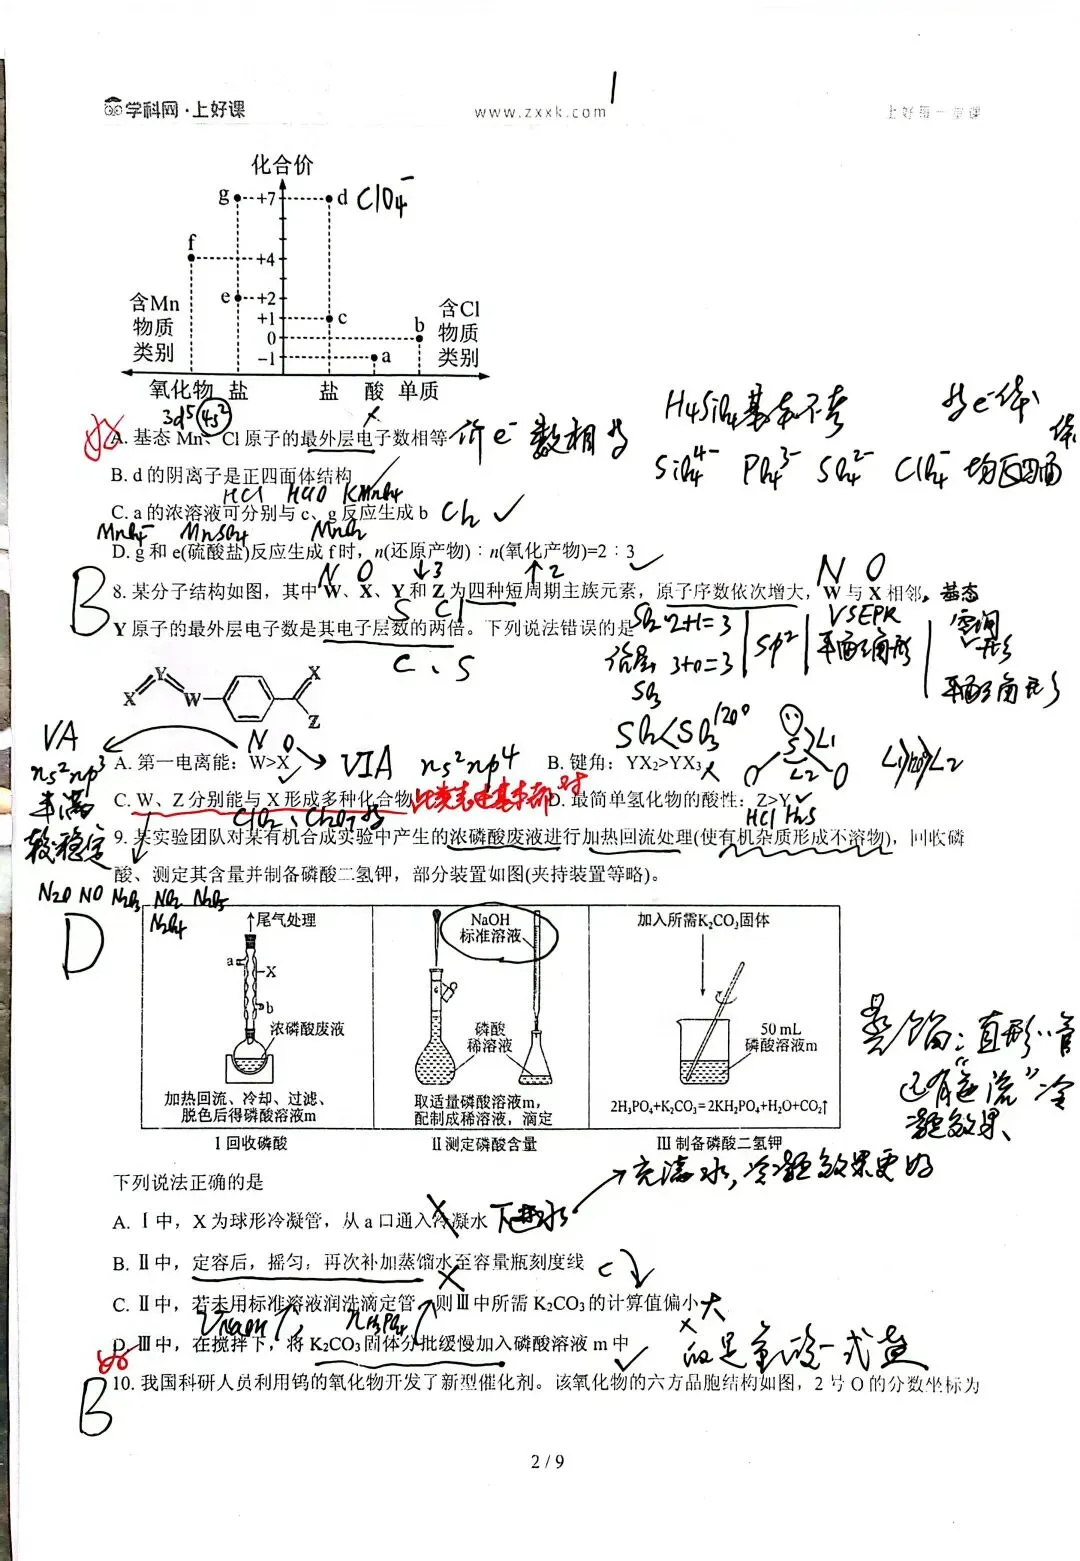 1
学科网·上好课 www.zxxk.com 上好每一堂课
化合价
g +7 d ClO₄⁻
f +4
e +2
+1 c
0 b
-1 a
含Mn物质类别 含Cl物质类别
氧化物 盐 盐 酸 单质
3d⁵4s² ×
H₄SiO₄基本不考 等e⁻体
A. 基态 Mn、Cl 原子的最外层电子数相等 价e⁻数相等
SiO₄⁴⁻ PO₄³⁻ SO₄²⁻ ClO₄⁻ 均正四面体
B. d 的阴离子是正四面体结构
HCl HClO KMnO₄
C. a 的浓溶液可分别与 c、g 反应生成 b Cl₂ ✓
MnO₄⁻ MnSO₄ MnO₂
D. g 和 e(硫酸盐)反应生成 f 时，n(还原产物)∶n(氧化产物)=2∶3 ✓
B N O ↓3 ↑2 N O
8. 某分子结构如图，其中 W、X、Y 和 Z 为四种短周期主族元素，原子序数依次增大，W 与 X 相邻，基态
S Cl
Y 原子的最外层电子数是其电子层数的两倍。下列说法错误的是
C、S
SO₂ 2+1=3 sp² VSEPR 平面三角形 空间
价层 3+0=3 平面三角形
SO₃
X Y W X Z
SO₂<SO₃ 120°
S O O L1 L2
VA N O VIA ns²np⁴
A. 第一电离能：W>X ✓ B. 键角：YX₂>YX₃ ×
ns²np³
半满
较稳定
C. W、Z 分别能与 X 形成多种化合物 D. 最简单氢化物的酸性：Z>Y ✓
HCl H₂S
9. 某实验团队对某有机合成实验中产生的浓磷酸废液进行加热回流处理(使有机杂质形成不溶物)，回收磷
酸、测定其含量并制备磷酸二氢钾，部分装置如图(夹持装置等略)。
N₂O NO N₂O₃ NO₂ N₂O₅
N₂O₄
D
尾气处理
a
X
b
浓磷酸废液
加热回流、冷却、过滤、
脱色后得磷酸溶液m
Ⅰ回收磷酸
NaOH
标准溶液
磷酸
稀溶液
取适量磷酸溶液m，
配制成稀溶液，滴定
Ⅱ测定磷酸含量
加入所需K₂CO₃固体
50 mL
磷酸溶液m
2H₃PO₄+K₂CO₃=2KH₂PO₄+H₂O+CO₂↑
Ⅲ制备磷酸二氢钾
蒸馏：直形管
还有“逆流”冷
凝效果
下列说法正确的是
充满水，冷凝效果更好
A. Ⅰ中，X 为球形冷凝管，从 a 口通入冷凝水 × 下进水
B. Ⅱ中，定容后，摇匀，再次补加蒸馏水至容量瓶刻度线 × c↓
C. Ⅱ中，若未用标准溶液润洗滴定管，则Ⅲ中所需 K₂CO₃ 的计算值偏小 × 大
VNaOH↑ nH₃PO₄↑
D. Ⅲ中，在搅拌下，将 K₂CO₃ 固体分批缓慢加入磷酸溶液 m 中 ✓
B
10. 我国科研人员利用钨的氧化物开发了新型催化剂。该氧化物的六方晶胞结构如图，2 号 O 的分数坐标为
2 / 9